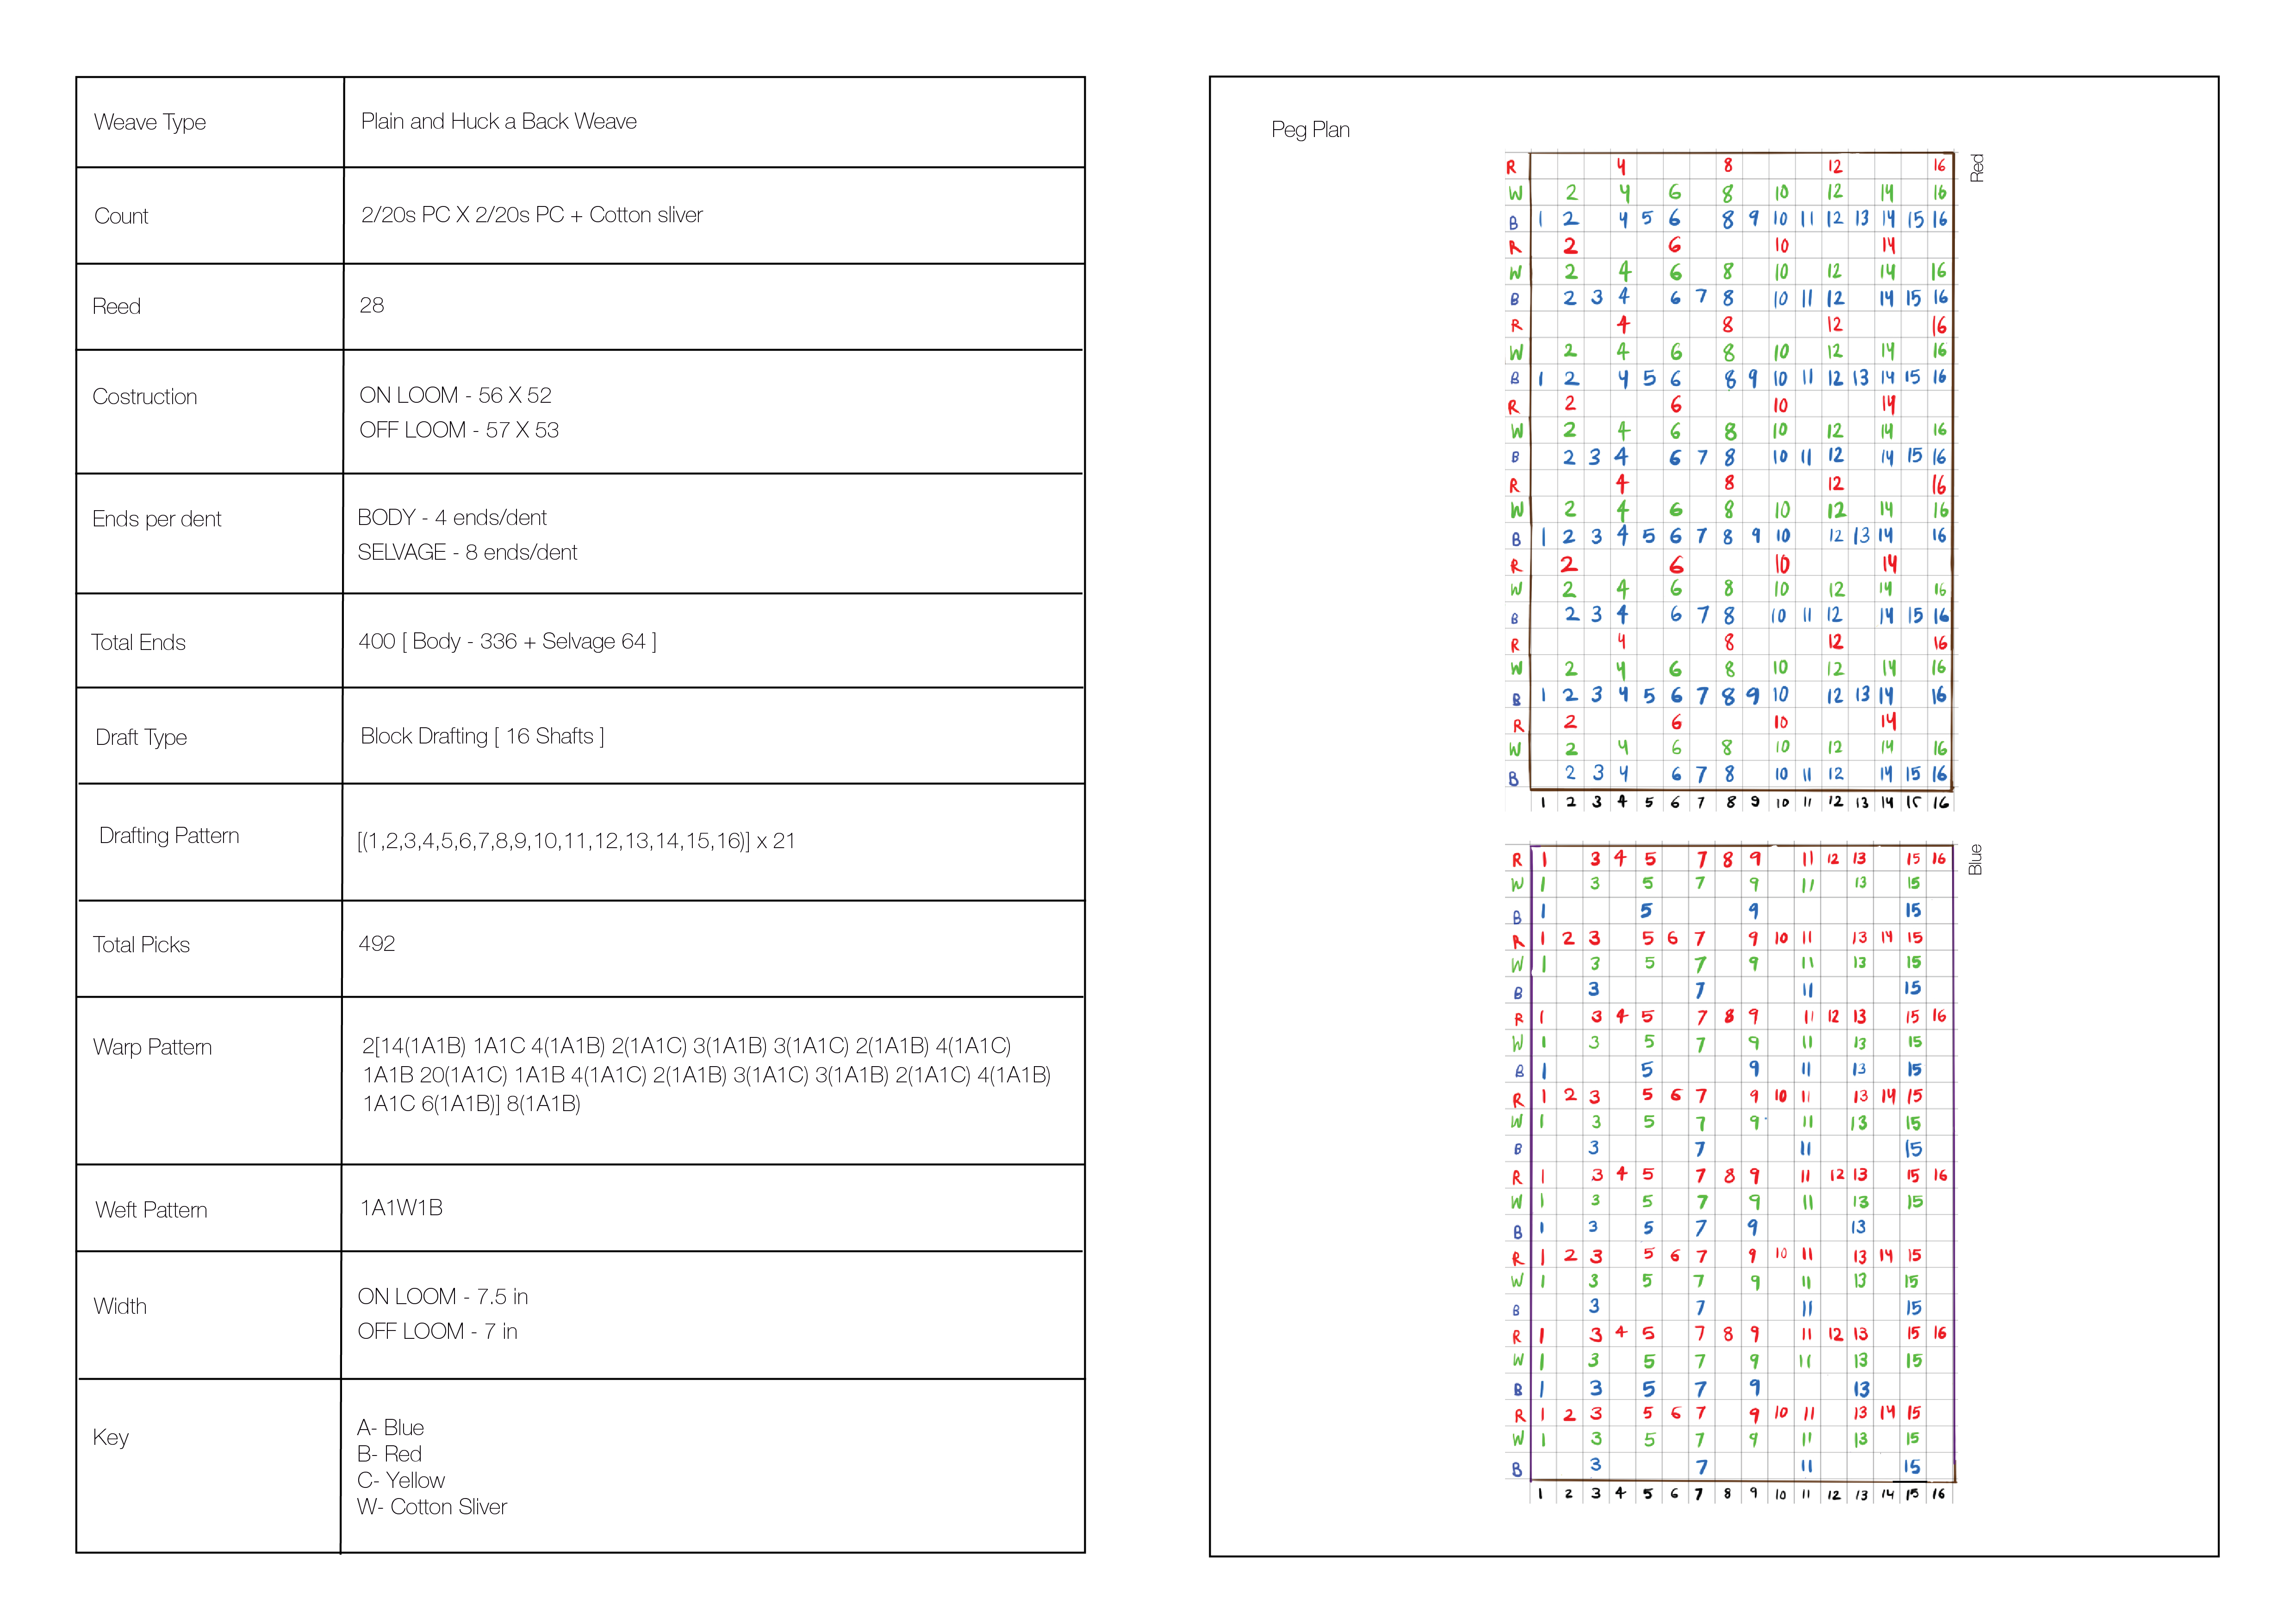 Weave Type
Plain and Huck a Back Weave
Count
2/20s PC X 2/20s PC + Cotton sliver
Reed
28
Costruction
ON LOOM - 56 X 52
OFF LOOM - 57 X 53
Ends per dent
BODY - 4 ends/dent
SELVAGE - 8 ends/dent
Total Ends
400 [ Body - 336 + Selvage 64 ]
Draft Type
Block Drafting [ 16 Shafts ]
Drafting Pattern
[(1,2,3,4,5,6,7,8,9,10,11,12,13,14,15,16)] x 21
Total Picks
492
Warp Pattern
2[14(1A1B) 1A1C 4(1A1B) 2(1A1C) 3(1A1B) 3(1A1C) 2(1A1B) 4(1A1C)
1A1B 20(1A1C) 1A1B 4(1A1C) 2(1A1B) 3(1A1C) 3(1A1B) 2(1A1C) 4(1A1B)
1A1C 6(1A1B)] 8(1A1B)
Weft Pattern
1A1W1B
Width
ON LOOM - 7.5 in
OFF LOOM - 7 in
Key
A- Blue
B- Red
C- Yellow
W- Cotton Sliver
Peg Plan
Red
R 4 8 12 16
W 2 4 6 8 10 12 14 16
B 1 2 4 5 6 8 9 10 11 12 13 14 15 16
R 2 6 10 14
W 2 4 6 8 10 12 14 16
B 2 3 4 6 7 8 10 11 12 14 15 16
R 4 8 12 16
W 2 4 6 8 10 12 14 16
B 1 2 4 5 6 8 9 10 11 12 13 14 15 16
R 2 6 10 14
W 2 4 6 8 10 12 14 16
B 2 3 4 6 7 8 10 11 12 14 15 16
R 4 8 12 16
W 2 4 6 8 10 12 14 16
B 1 2 3 4 5 6 7 8 9 10 12 13 14 16
R 2 6 10 14
W 2 4 6 8 10 12 14 16
B 2 3 4 6 7 8 10 11 12 14 15 16
R 4 8 12 16
W 2 4 6 8 10 12 14 16
B 1 2 3 4 5 6 7 8 9 10 12 13 14 16
R 2 6 10 14
W 2 4 6 8 10 12 14 16
B 2 3 4 6 7 8 10 11 12 14 15 16
1 2 3 4 5 6 7 8 9 10 11 12 13 14 15 16
Blue
R 1 3 4 5 7 8 9 11 12 13 15 16
W 1 3 5 7 9 11 13 15
B 1 5 9 15
R 1 2 3 5 6 7 9 10 11 13 14 15
W 1 3 5 7 9 11 13 15
B 3 7 11 15
R 1 3 4 5 7 8 9 11 12 13 15 16
W 1 3 5 7 9 11 13 15
B 1 5 9 11 13 15
R 1 2 3 5 6 7 9 10 11 13 14 15
W 1 3 5 7 9 11 13 15
B 3 7 11 15
R 1 3 4 5 7 8 9 11 12 13 15 16
W 1 3 5 7 9 11 13 15
B 1 3 5 7 9 13
R 1 2 3 5 6 7 9 10 11 13 14 15
W 1 3 5 7 9 11 13 15
B 3 7 11 15
R 1 3 4 5 7 8 9 11 12 13 15 16
W 1 3 5 7 9 11 13 15
B 1 3 5 7 9 13
R 1 2 3 5 6 7 9 10 11 13 14 15
W 1 3 5 7 9 11 13 15
B 3 7 11 15
1 2 3 4 5 6 7 8 9 10 11 12 13 14 15 16